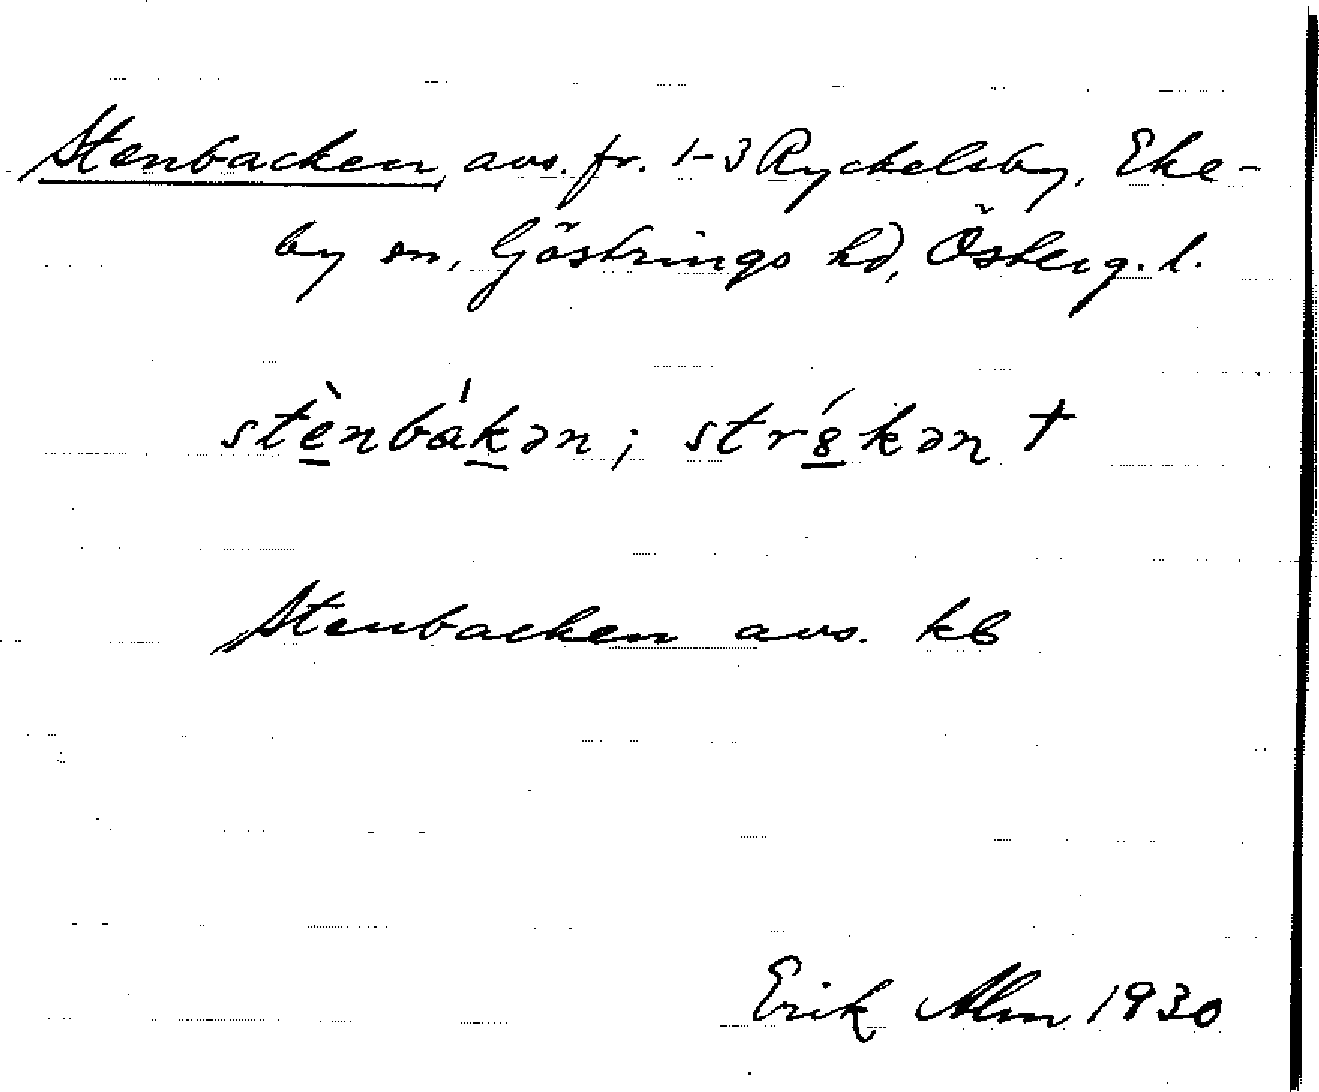 Stenbacken, avs. fr. 1-3 Ryckelsby, Eke-
by sn, Göstrings hd, Österg. l.
stènbákən; str8́kən †
Stenbacken avs. kb
Erik Alm 1930